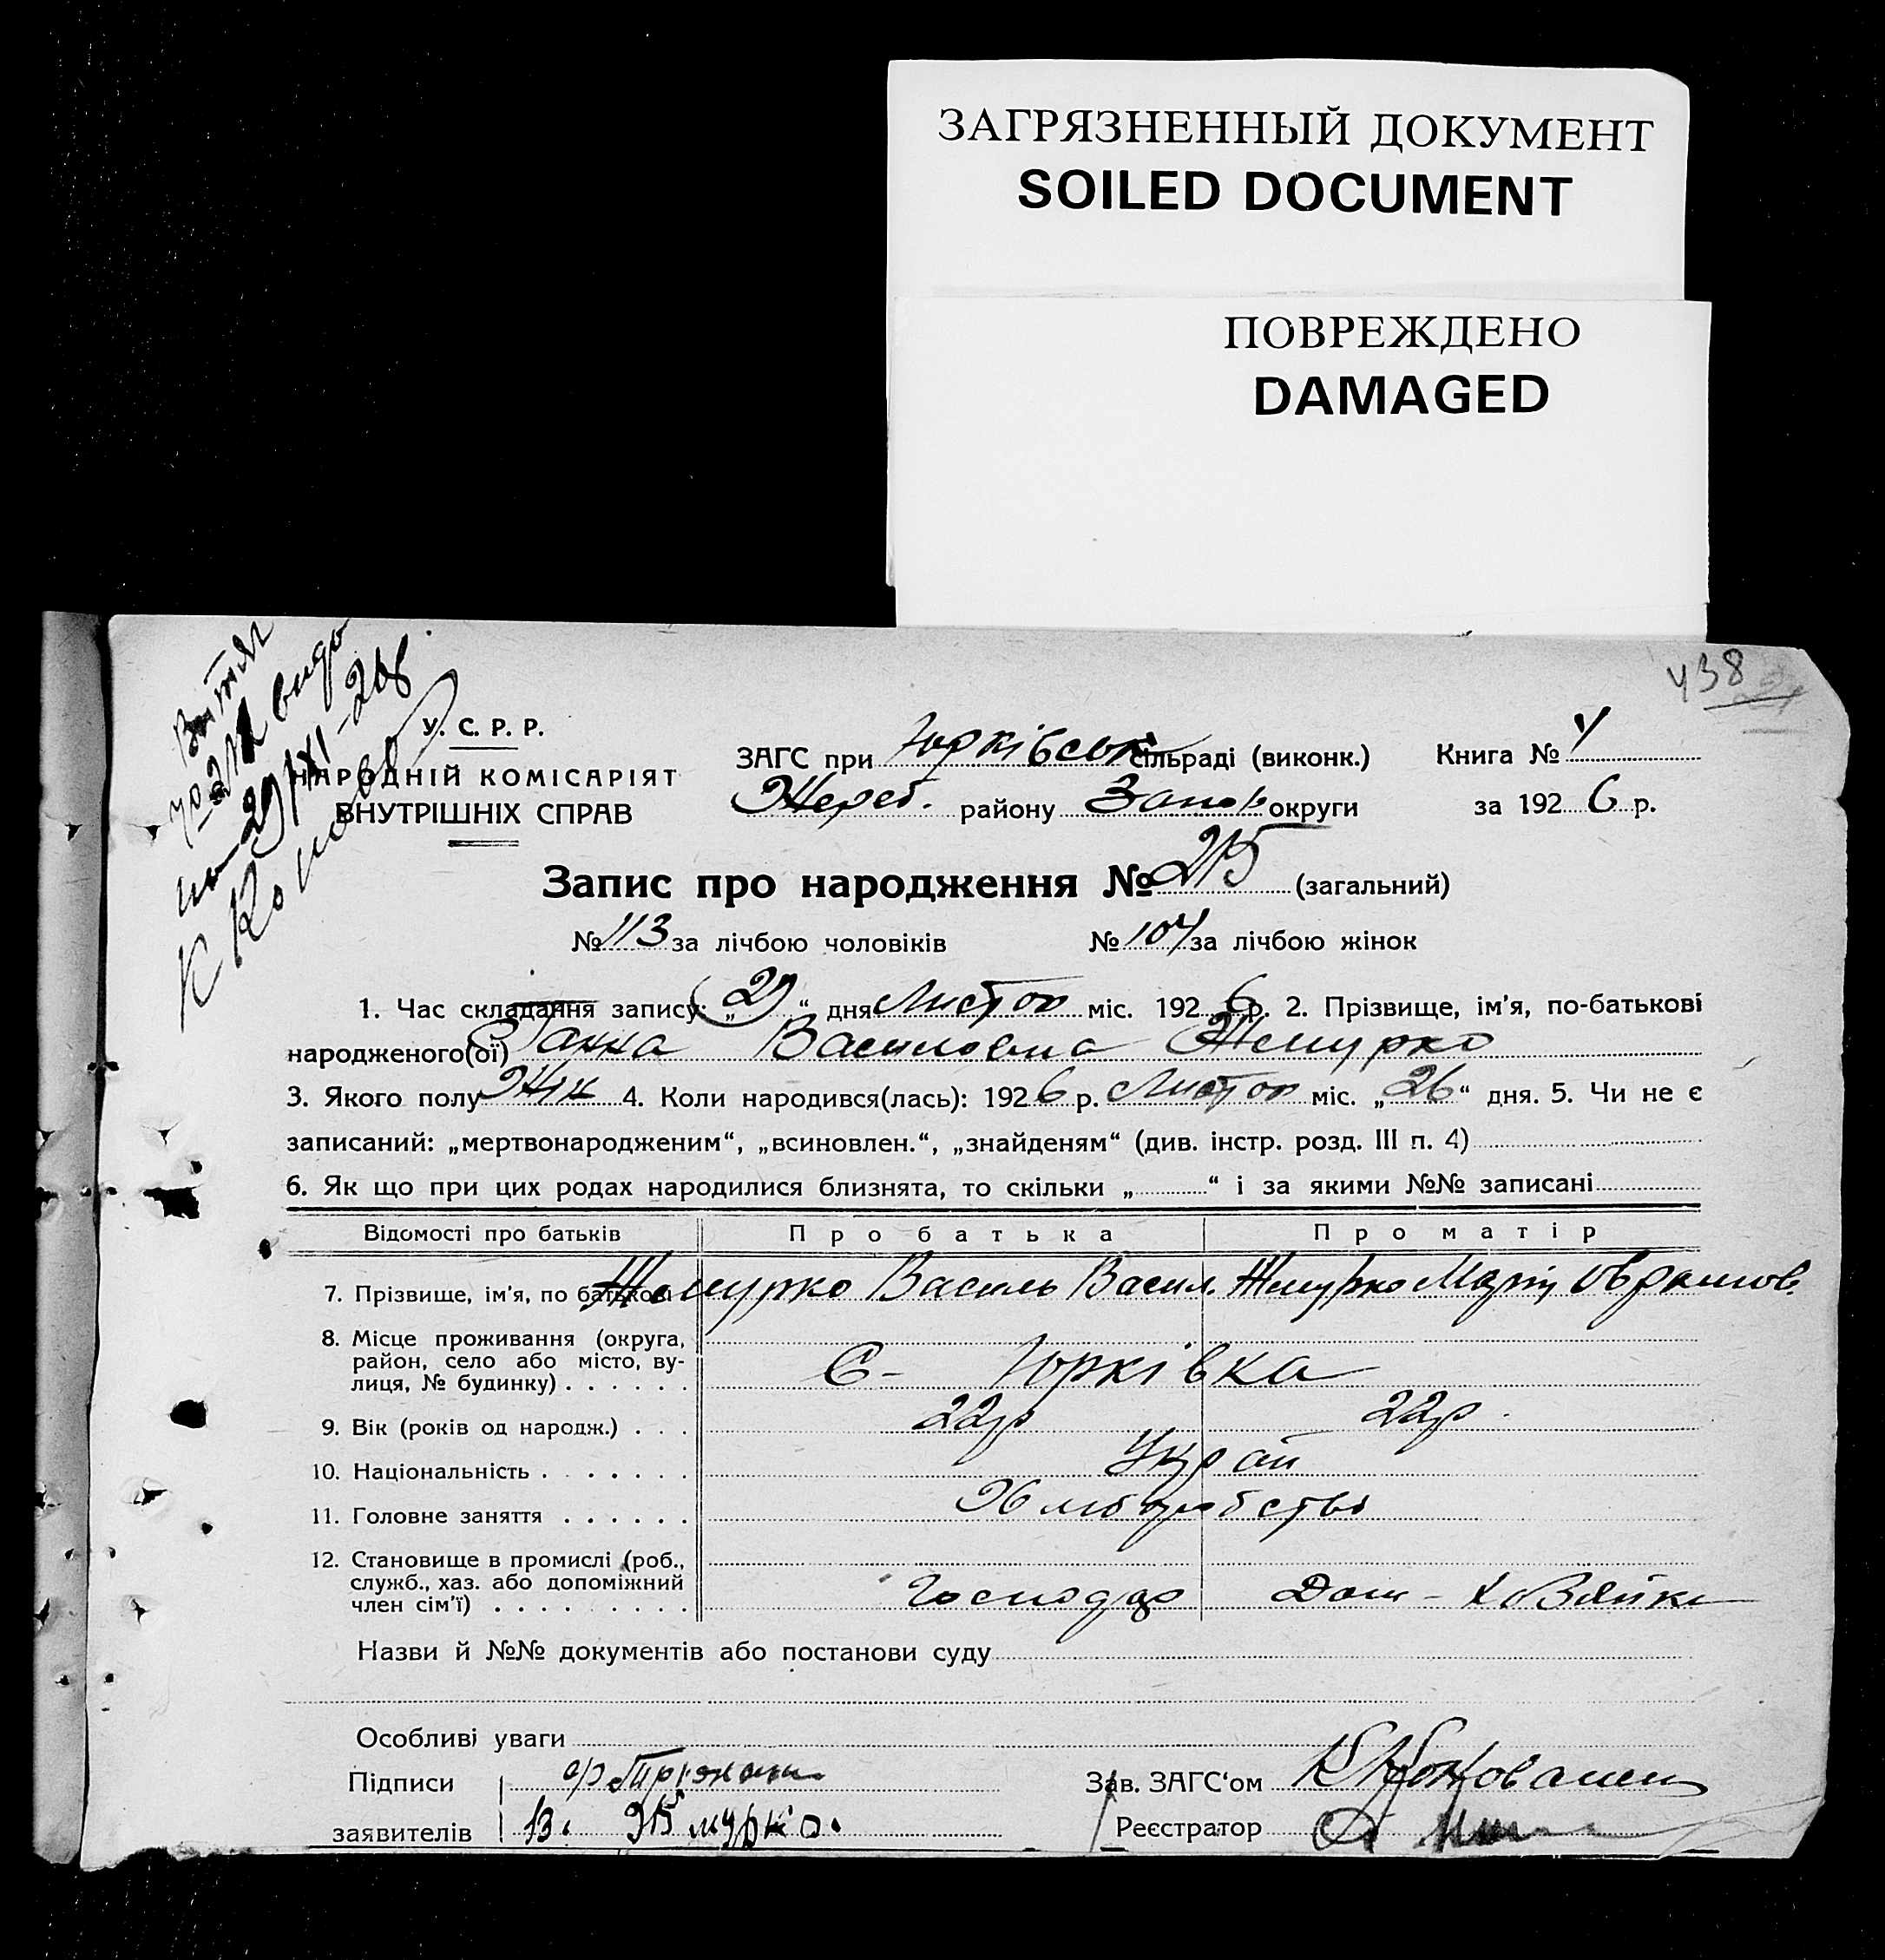 ЗАГРЯЗНЕННЫЙ ДОКУМЕНТ
SOILED DOCUMENT
ПОВРЕЖДЕНО
DAMAGED
438
Витяг
видо
29/XI-26
У. С. Р. Р.
НАРОДНІЙ КОМІСАРІЯТ
ВНУТРІШНІХ СПРАВ
ЗАГС при Юрківськ сільраді (виконк.) Книга №
Жереб. району Запор округи за 1926 р.
Запис про народження № 215 (загальний)
№ 113 за лічбою чоловіків № 104 за лічбою жінок
1. Час складання запису: „29“ дня Листоп міс. 1926 р. 2. Прізвище, ім’я, по-батькові
народженого(ої) Ганна Василовна Жмурко
3. Якого полу Жін 4. Коли народився(лась): 1926 р. Листоп міс. „26“ дня. 5. Чи не є
записаний: „мертвонародженим“, „всиновлен.“, „знайденям“ (див. інстр. розд. III п. 4)
6. Як що при цих родах народилися близнята, то скільки „ “ і за якими №№ записані
Відомості про батьків Про батька Про матір
7. Прізвище, ім’я, по батькові Жмурко Василь Васил. Жмурко Марія
8. Місце проживання (округа,
район, село або місто, ву-
лиця, № будинку) . . . . . . С- Юрківка
9. Вік (років од народж.) . . . 22 р 22 р.
10. Національність . . . . . . . Украй
11. Головне заняття . . . . . . Хліборобство
12. Становище в промислі (роб.,
служб., хаз. або допоміжний
член сім’ї) . . . . . . . . . Господар Дом-Хозяйка
Назви й №№ документів або постанови суду
Особливі уваги
Підписи Зав. ЗАГС‘ом
заявителів В. Жмурко. Реєстратор